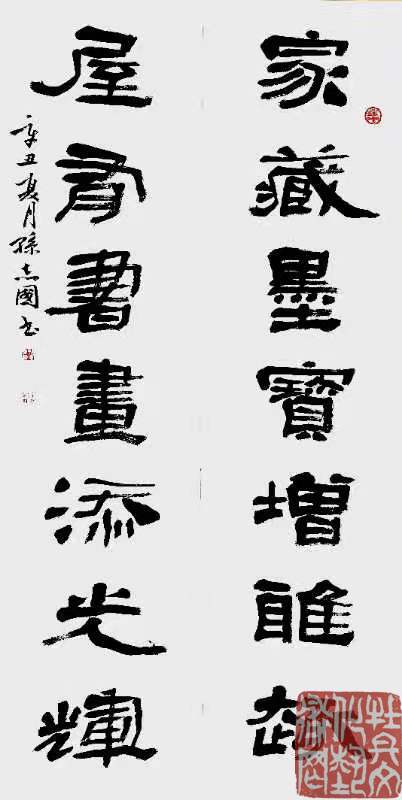 家藏墨寶增雅趣
屋有書畫添光輝
辛丑夏月孫志國书